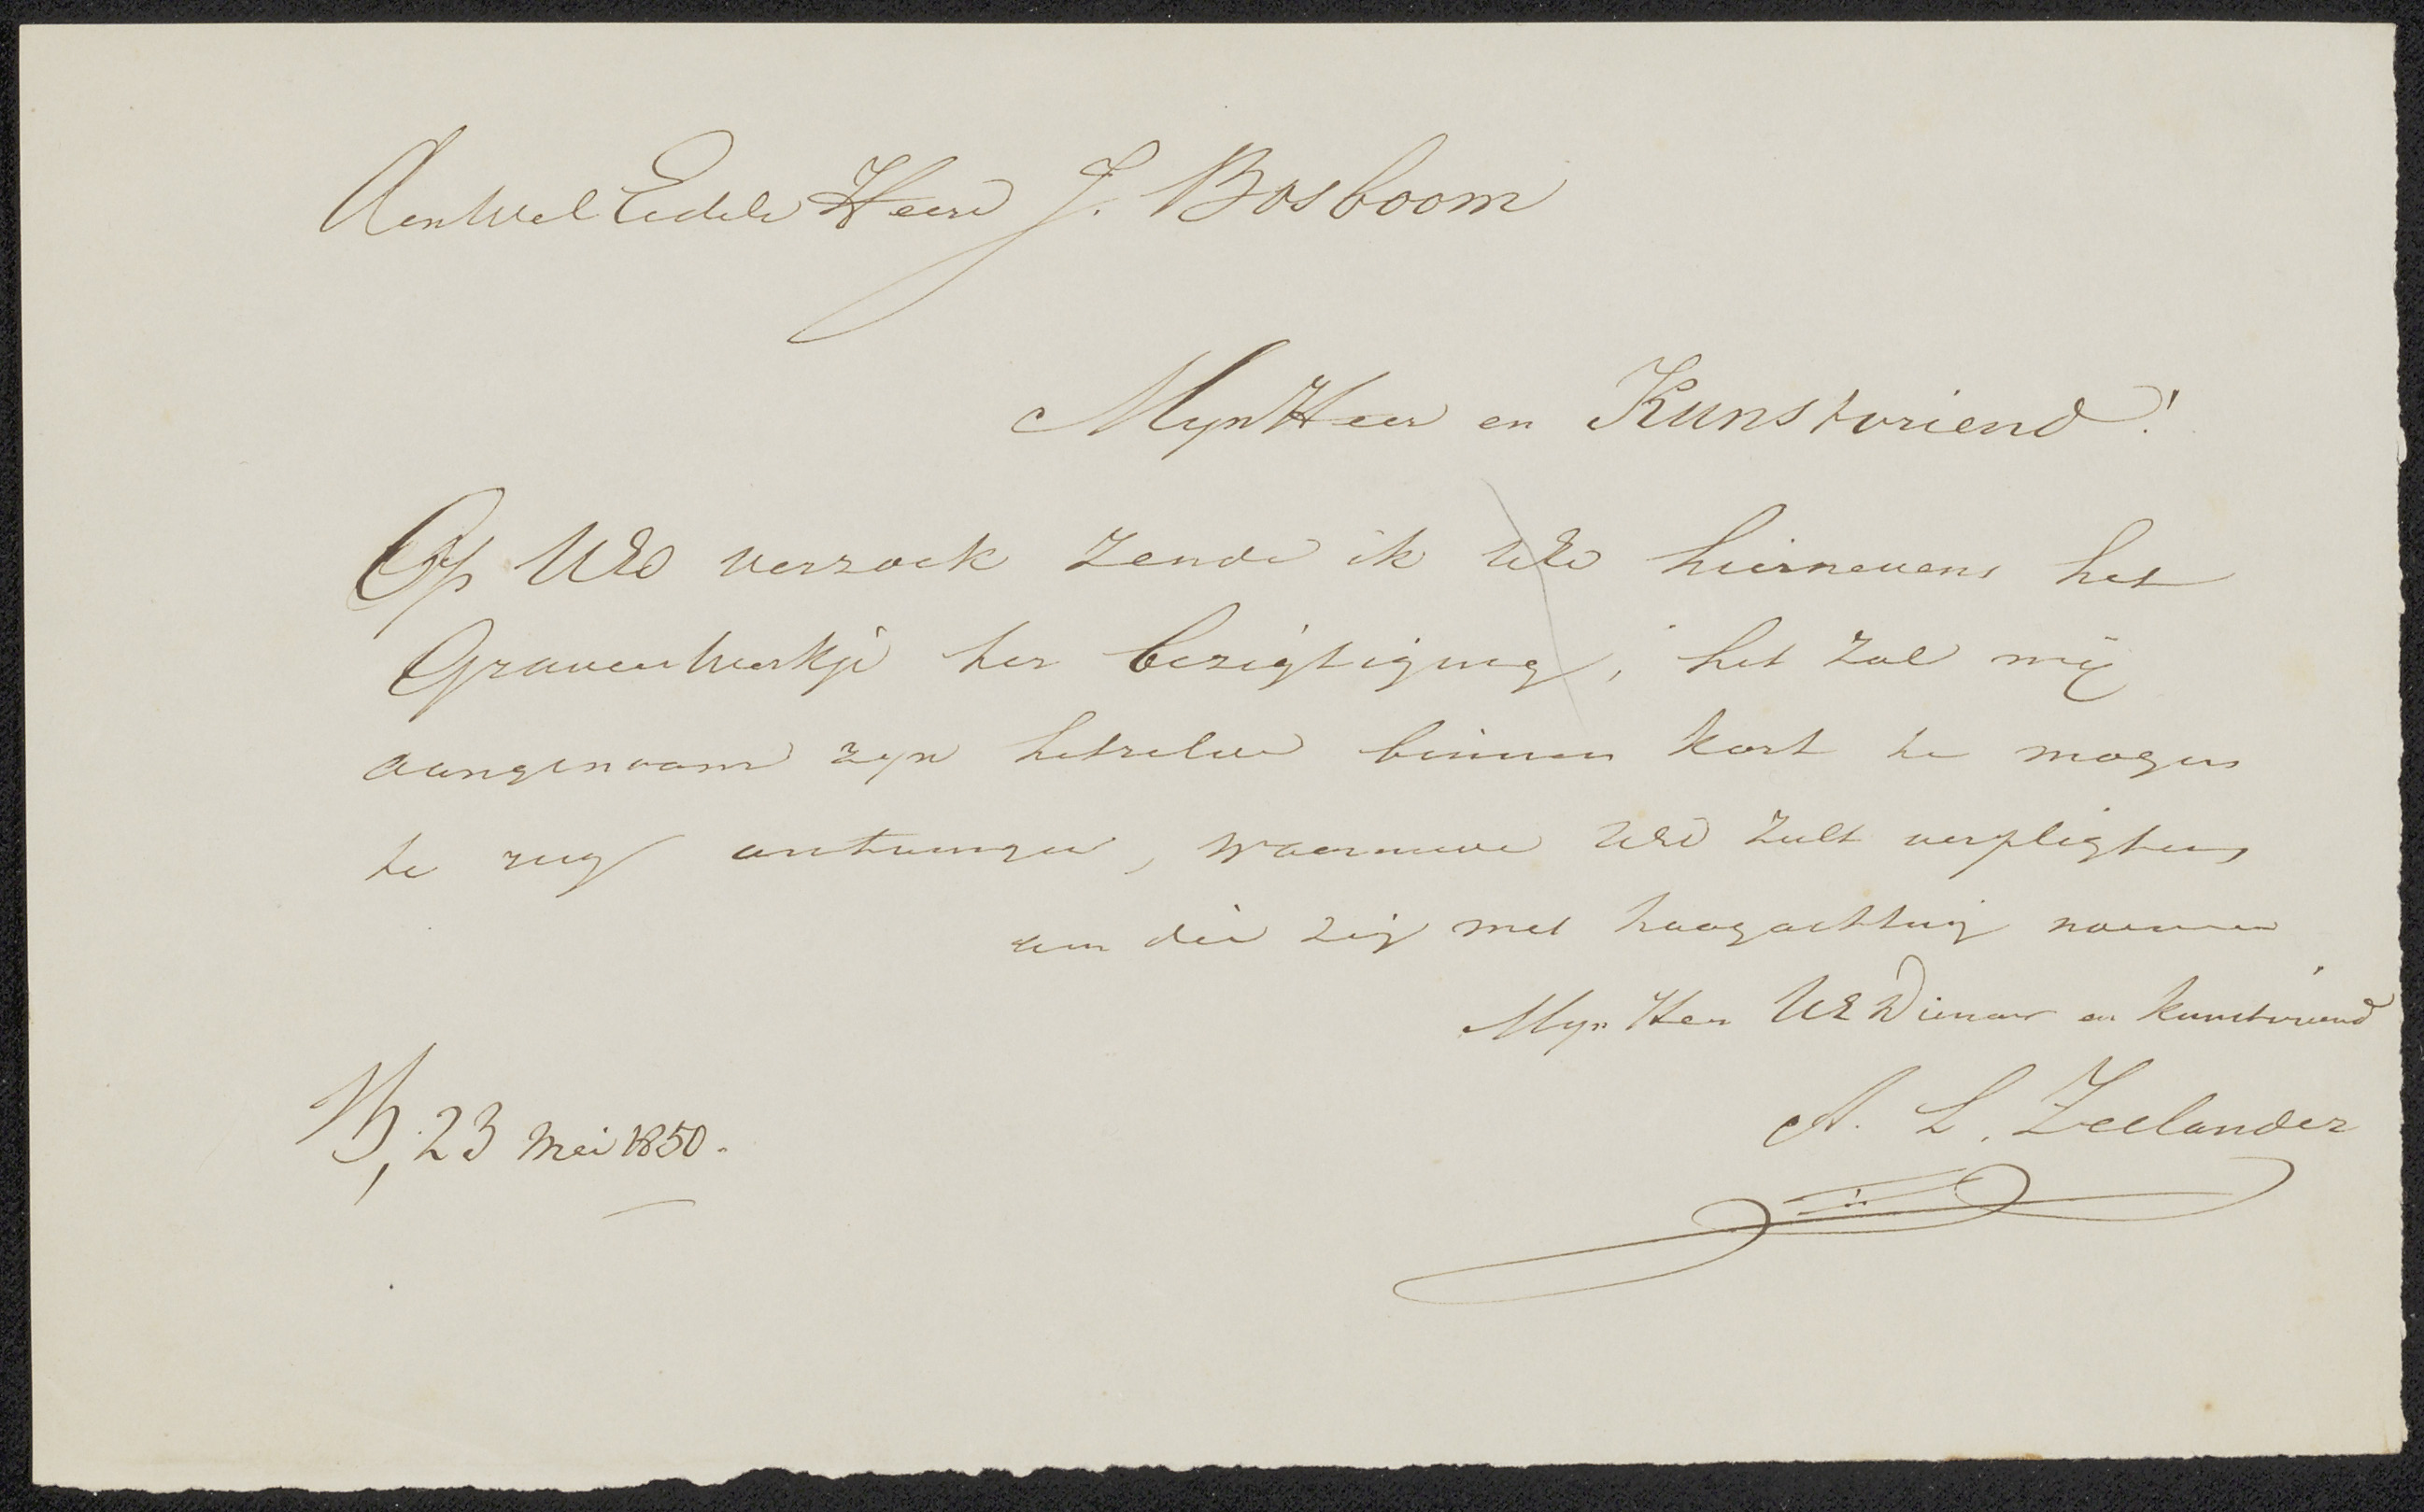 Aan Wel Edele Heere J. Bosboom
Myn Heer en Kunstvriend!
Op UEd verzoek zende ik UEd hiernevens het
Graveerwerkje ter bezigtiging, het zal mij
aangenaam zyn hetzelve binnen kort te mogen
te rug ontvangen, waarmede UEd zult verpligten
een die zig met hoogachting noemen
Myn Heer UEd Dienaar en Kunstvriend
A. L. Zeelander
H, 23 Mei 1850.